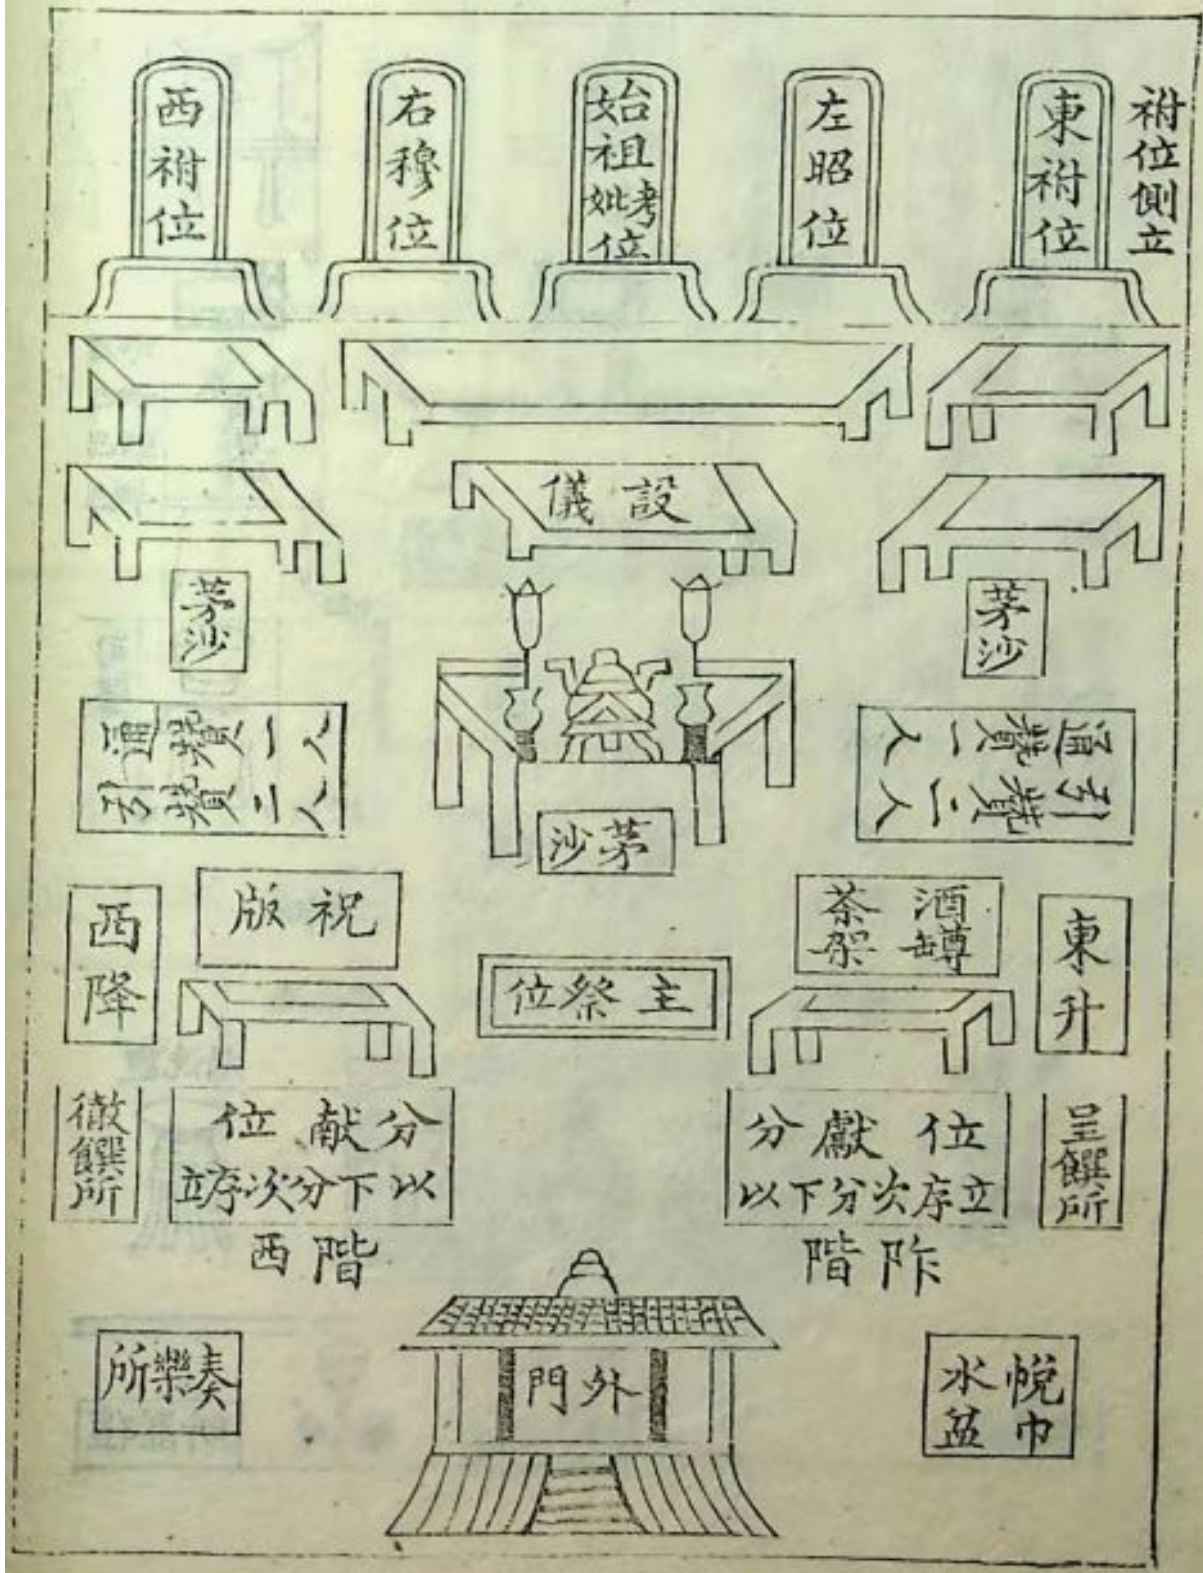 祔位側立
東祔位
左昭位
始祖考妣位
右穆位
西祔位
設儀
茅沙
茅沙
通贊一人
引贊二人
通贊一人
引贊二人
茅沙
東升
酒罇
茶架
祝版
西降
主祭位
呈饌所
分獻位
以下分次序立
分献位
以下分次序立
徹饌所
阼階
西階
帨巾
水盆
外門
奏樂所